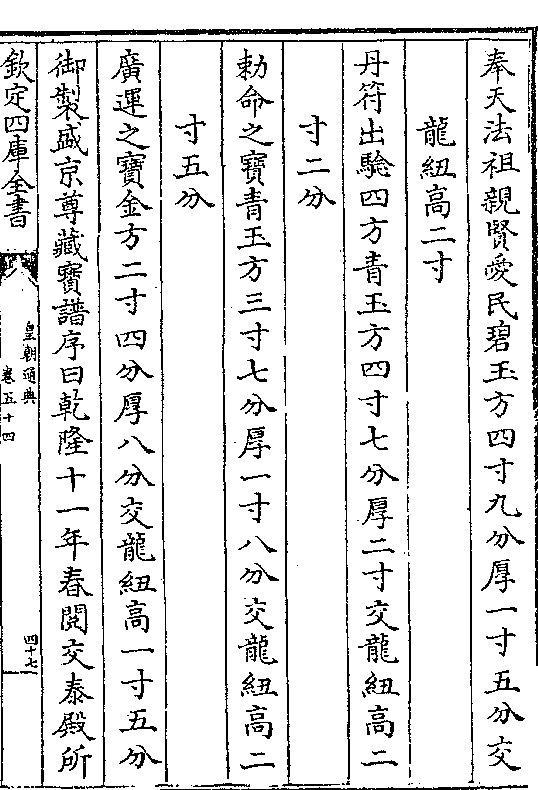 奉天法祖親賢愛民碧玉方四寸九分厚一寸五分交
龍紐高二寸
丹符出驗四方青玉方四寸七分厚二寸交龍紐高二
寸二分
勅命之寶青玉方三寸七分厚一寸八分交龍紐高二
寸五分
廣運之寶金方二寸四分厚八分交龍紐高一寸五分
御製盛京尊藏寶譜序曰乾隆十一年春閱交泰殿所
欽定四庫全書
皇朝通典
卷五十四
四十七